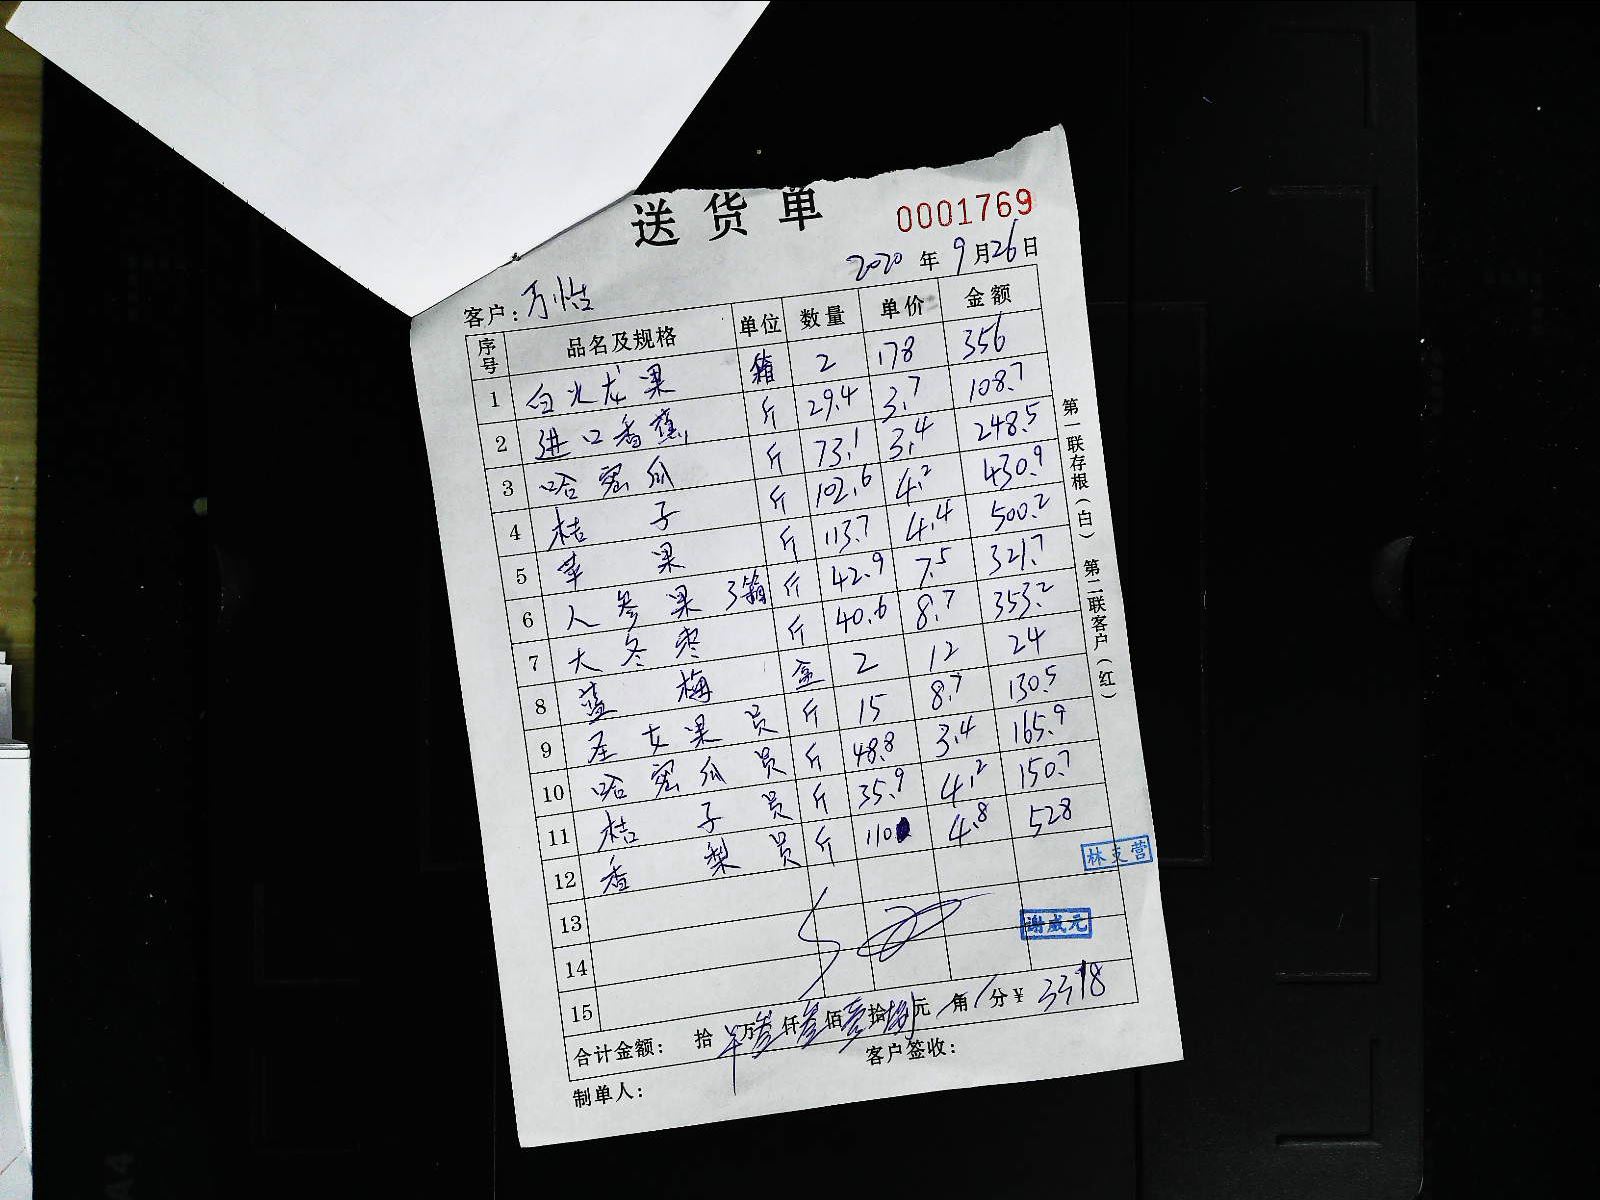 送货单 0001769
2020年9月26日
客户：万怡
序号 品名及规格 单位 数量 单价 金额
1 白火龙果 箱 2 178 356
2 进口香蕉 斤 29.4 3.7 108.7
3 哈密瓜 斤 73.1 3.4 248.5
4 桔子 斤 102.6 4.2 430.9
5 苹果 斤 113.7 4.4 500.2
6 人参果 3箱 斤 42.9 7.5 321.7
7 大冬枣 斤 40.6 8.7 353.2
8 蓝梅 盒 2 12 24
9 圣女果 员 斤 15 8.7 130.5
10 哈密瓜 员 斤 48.8 3.4 165.9
11 桔子 员 斤 35.9 4.2 150.7
12 香梨 员 斤 110 4.8 528
13
14
15
合计金额： 拾 万叁仟叁佰壹拾捌元 角 分 ¥ 3318
制单人： 客户签收：
第一联存根（白） 第二联客户（红）
林支营
谢威元